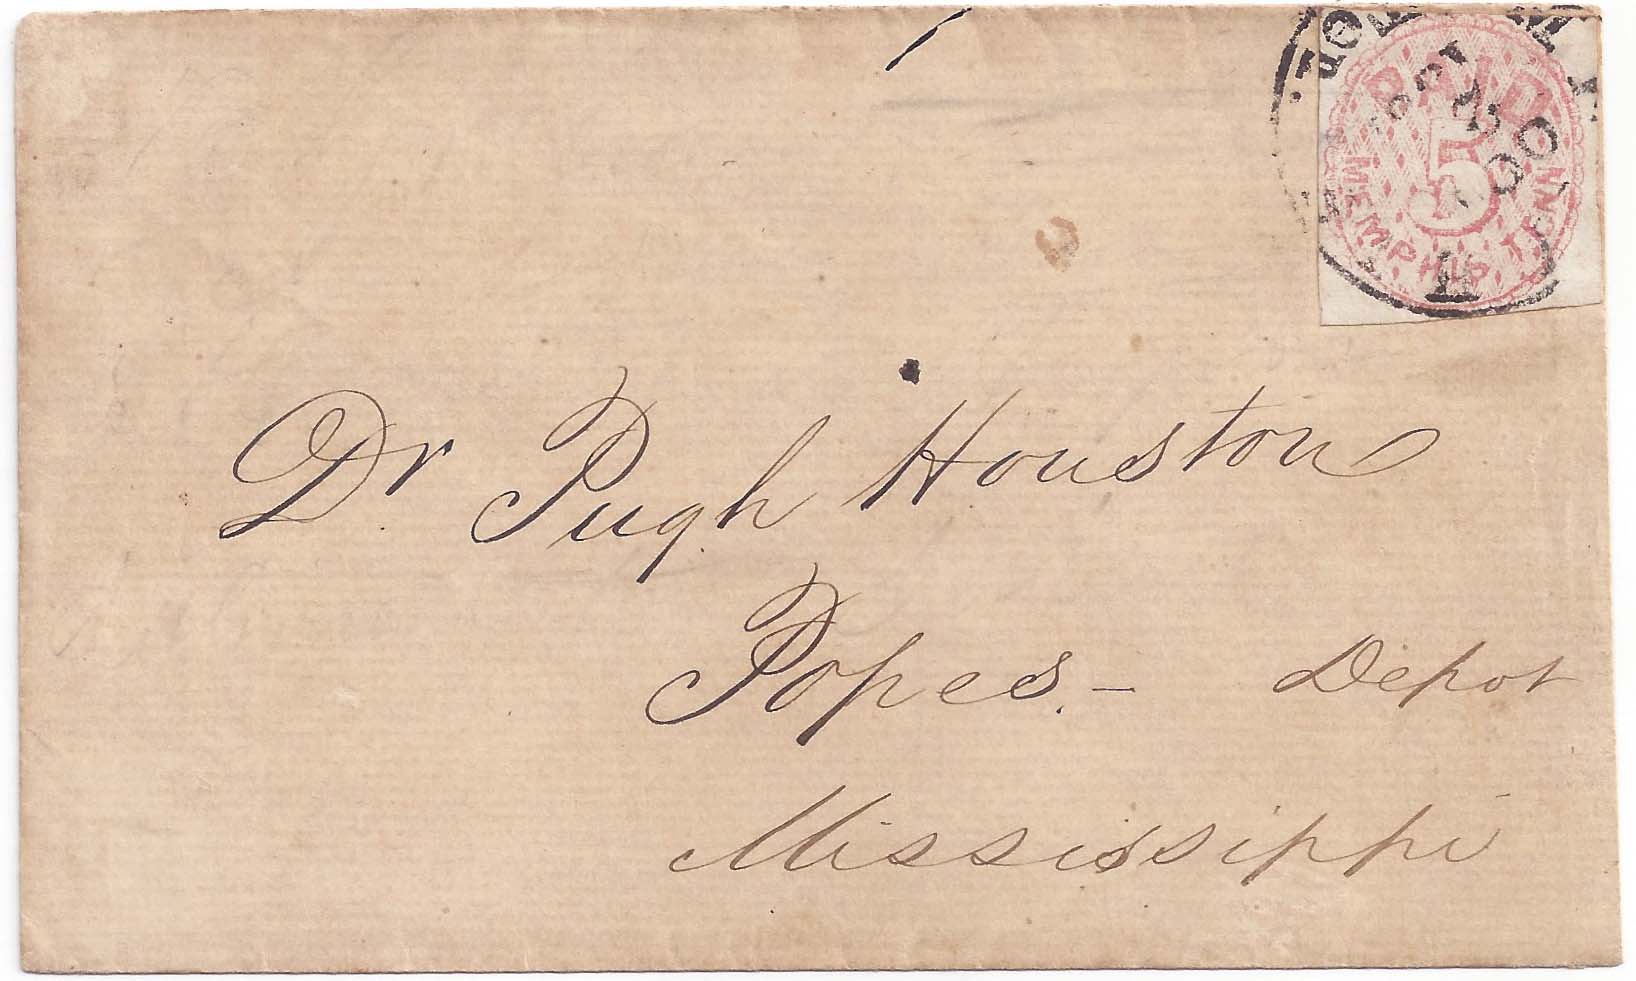 PAID
5
MEMPHIS, TENN.
Dr. Pugh Houston
Popes. - Depot
Mississippi